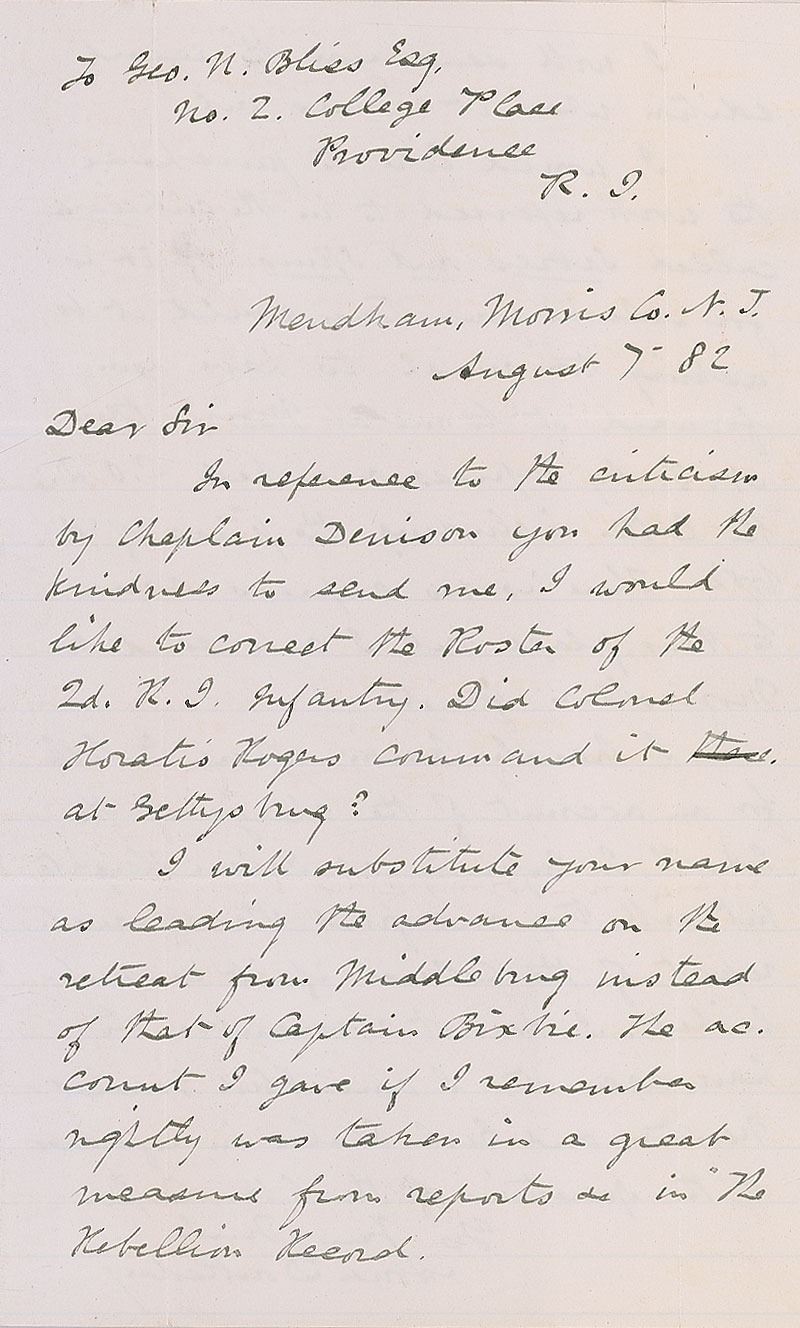 To Geo. N. Bliss Esq,
No. 2. College Place
Providence
R. I.
Mendham, Morris Co. N. J.
August 7 82
Dear Sir
In reference to the criticism
by Chaplain Denison you had the
kindness to send me, I would
like to correct the Roster of the
2d. R. I. Infantry. Did Colonel
Horatio Rogers command it
at Gettysburg?
I will substitute your name
as leading the advance on the
retreat from Middleburg instead
of that of Captain Bixbie. The ac.
count I gave if I remember
rightly was taken in a great
measure from reports in "The
Rebellion Record.